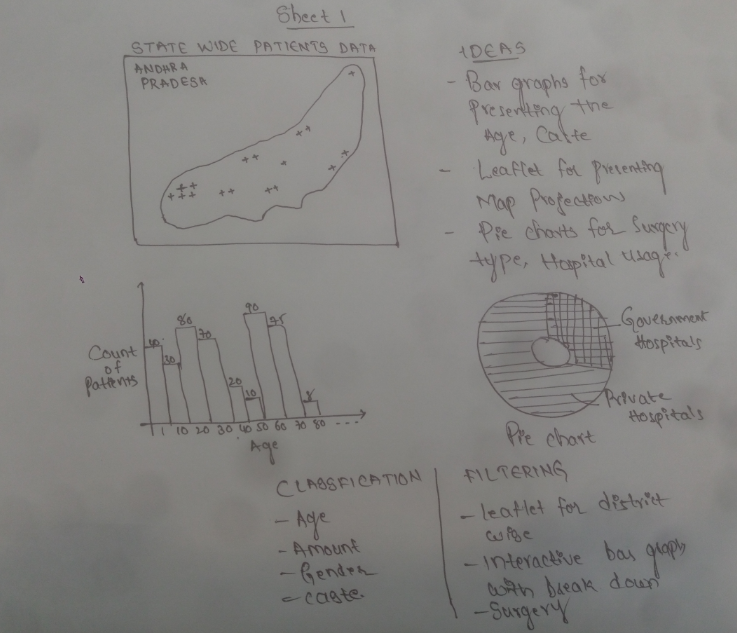 Sheet 1
STATE WIDE PATIENTS DATA
ANDHRA
PRADESH
IDEAS
- Bar graphs for
Presenting the
Age, Caste
- Leaflet for Presenting
Map Projections
- Pie charts for Surgery
type, Hospital usage.
Count
of
Patients
30
80
70
20
10
90
75
1 10 20 30 40 50 60 70 80 ....
Age
Government
Hospitals
Private
Hospitals
Pie chart
CLASSFICATION
- Age
- Amount
- Gender
- Caste
FILTERING
- Leaflet for district
wise
- Interactive bar graph
with break down
- Surgery